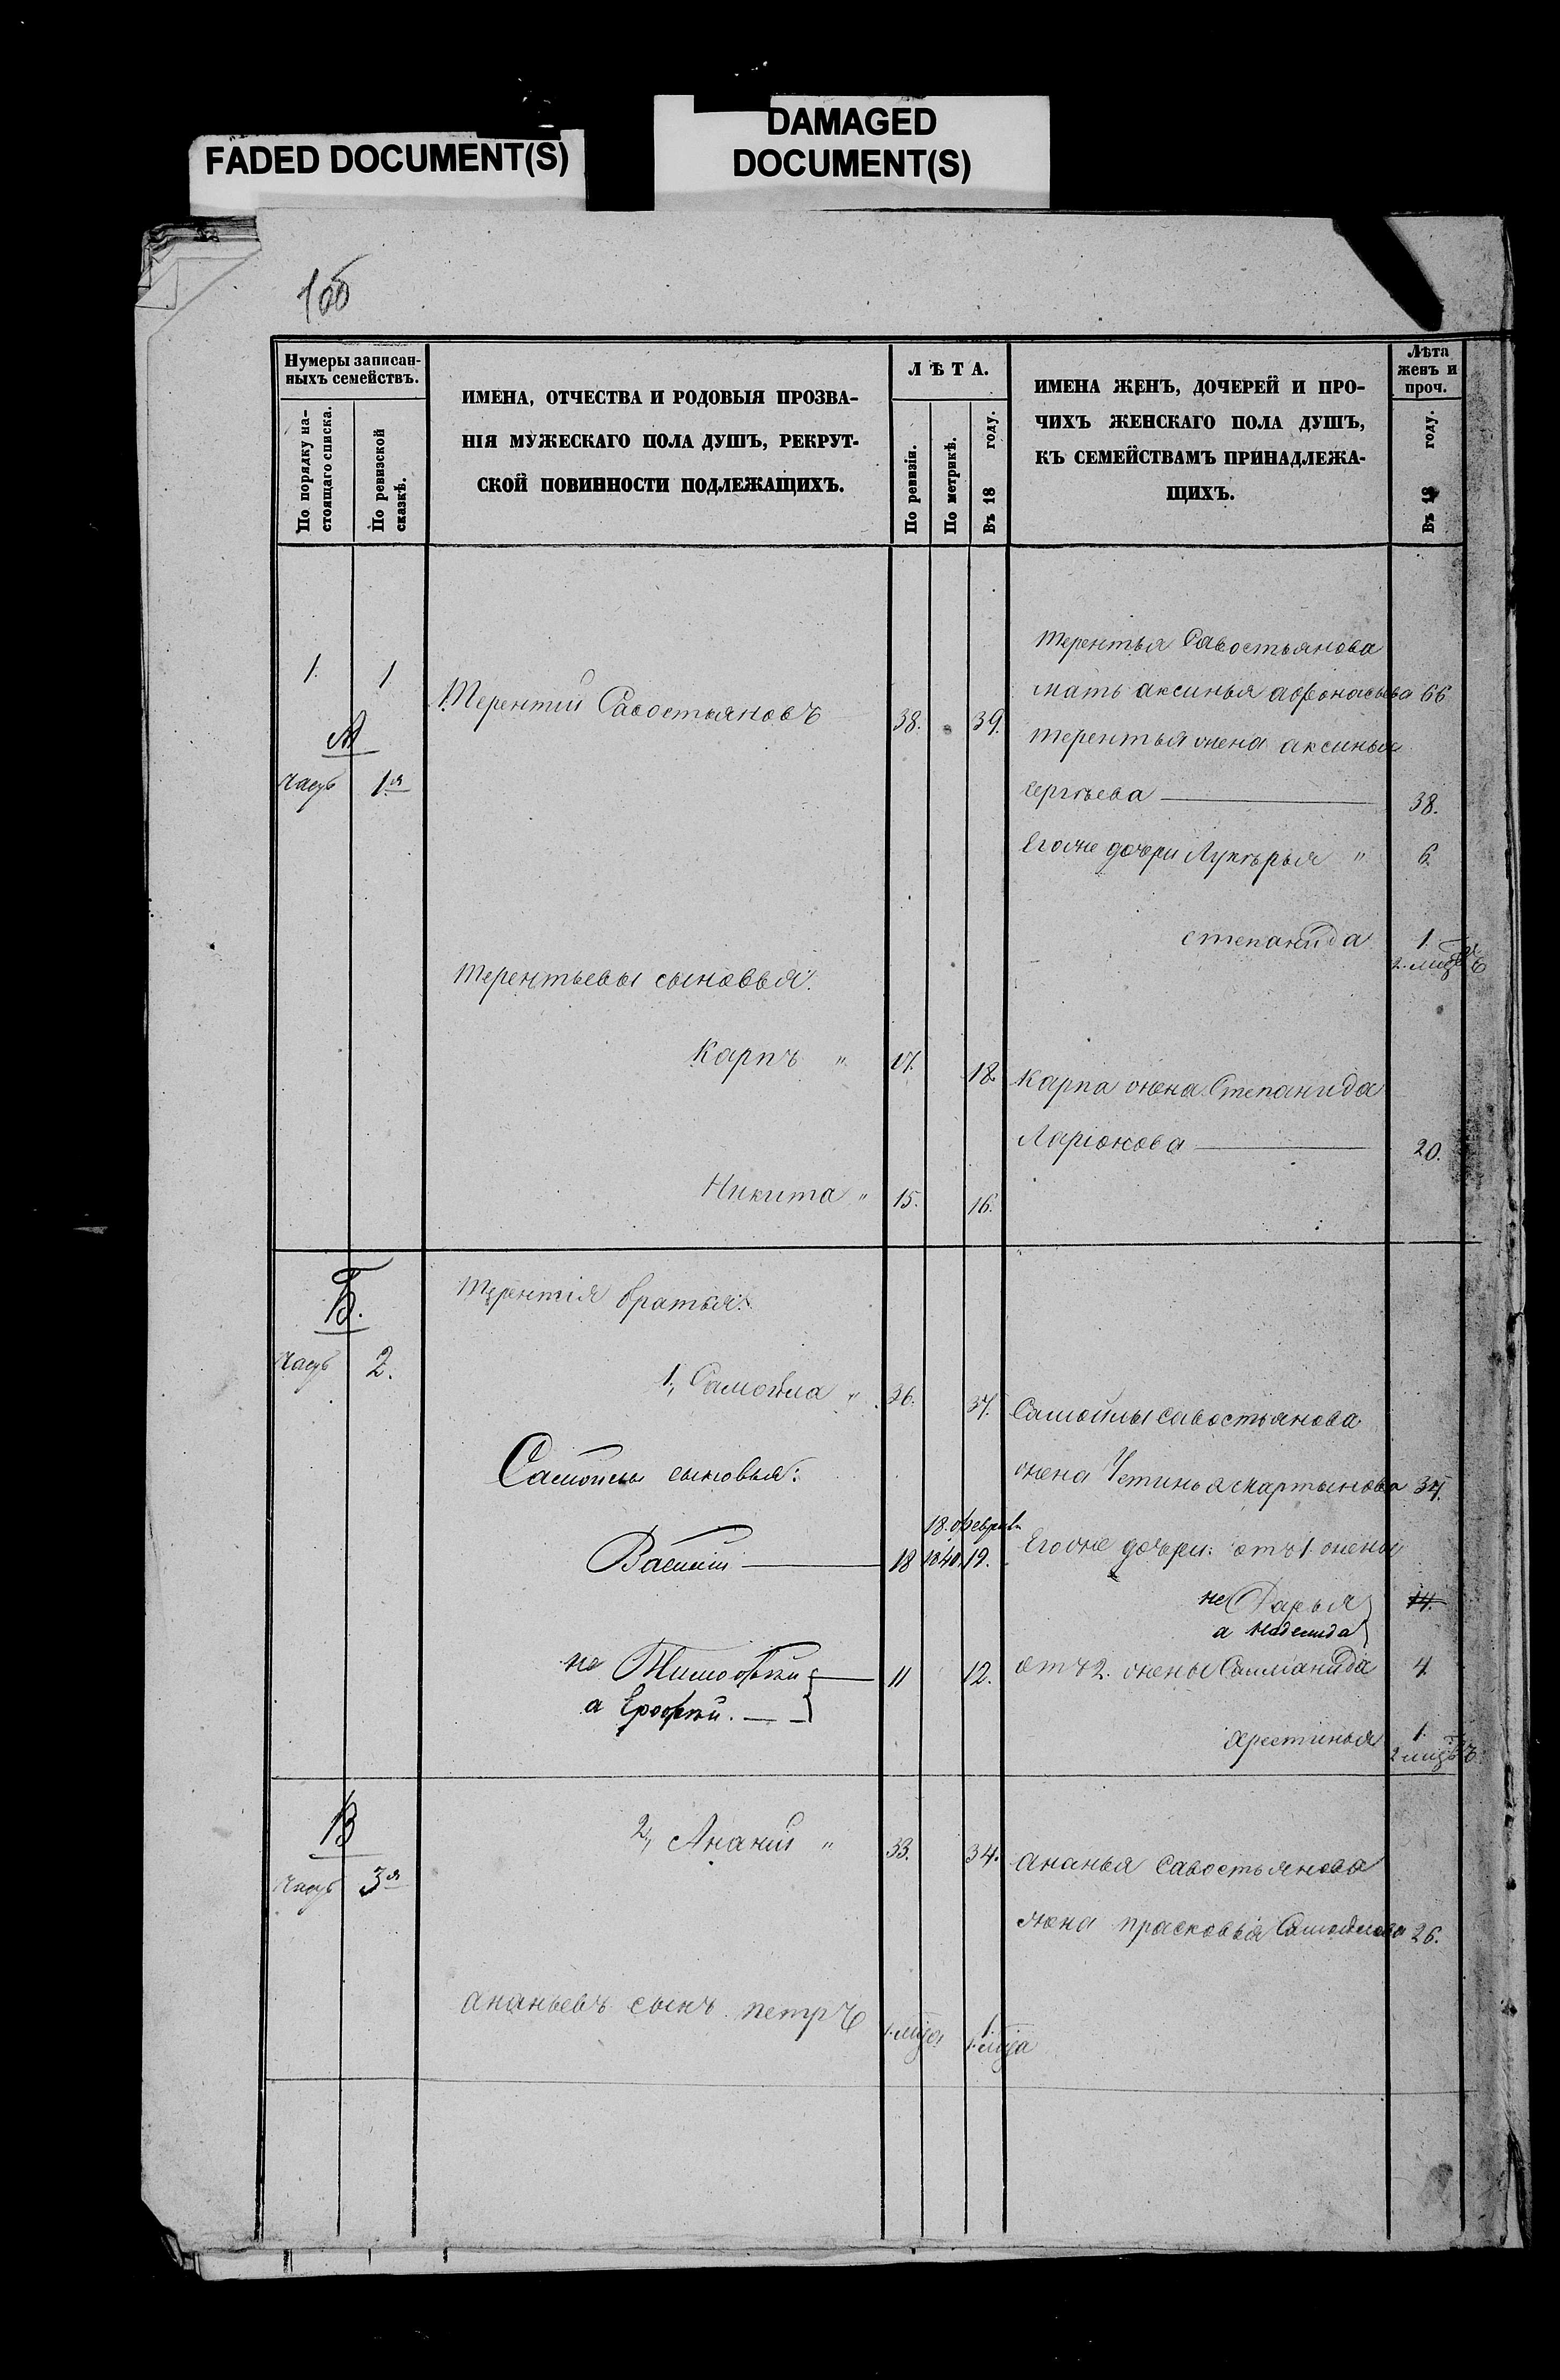 FADED DOCUMENT(S)
DAMAGED
DOCUMENT(S)
Нумеры записан-
ныхъ семействъ.
По порядку на-
стоящаго списка.
По ревизской
сказкѣ.
ИМЕНА, ОТЧЕСТВА И РОДОВЫЯ ПРОЗВА-
НІЯ МУЖЕСКАГО ПОЛА ДУШЪ, РЕКРУТ-
СКОЙ ПОВИННОСТИ ПОДЛЕЖАЩИХЪ.
ЛѢТА.
По ревизіи.
По метрикѣ.
Въ 18 году.
ИМЕНА ЖЕНЪ, ДОЧЕРЕЙ И ПРО-
ЧИХЪ ЖЕНСКАГО ПОЛА ДУШЪ,
КЪ СЕМЕЙСТВАМЪ ПРИНАДЛЕЖА-
ЩИХЪ.
Лѣта
женъ и
проч.
Въ 18 году.
Терентья Савостьянова
1. 1
Терентий Савостьяновъ 38. 39.
мать аксинья афонасьева 66
А
терентья жена аксинья
часть 1я
сергѣева 38.
Егоже дочери Лукѣрья " 6.
степанида 1.
Терентьевы сыновья:
Карпъ " 17. 18.
карпа жена Степанида
Ларіонова 20.
Никита " 15. 16.
Б.
Терентія братья:
часть 2.
1, Самойла " 36. 37.
Самойлы савостьянова
Самойлы сыновья:
жена Устинья мартынова 34.
18. феврал
Василій 18 1840. 19.
Егоже дочери: отъ 1 жены
не Дарья 14.
а
не Тимофѣй 11 12.
а Ерофѣй.
отъ 2. жены 4.
хрестинья 1.
В
2, Ананій " 33. 34.
часть 3я
ананья савостьянова
жена прасковья Самойлова 26.
ананьевъ сынъ петръ 1.